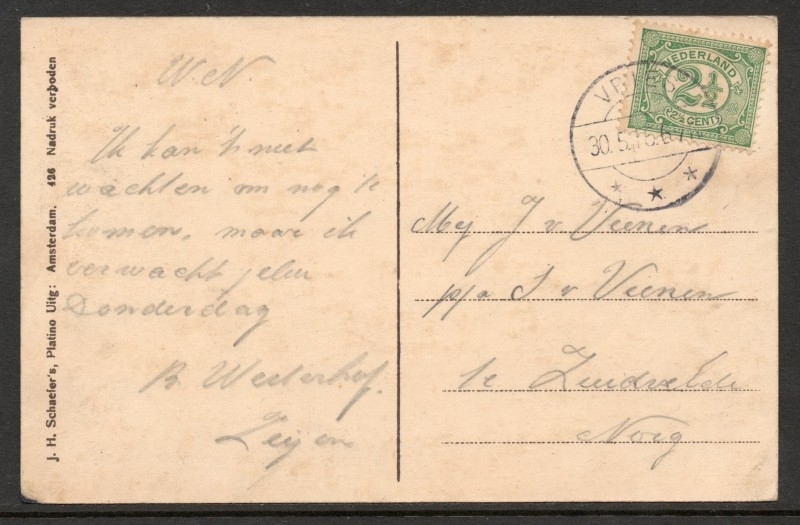 J. H. Schaefer's, Platino Uitg: Amsterdam. 426 Nadruk verboden
W.N.
Ik kan 't niet
wachten om nog te
komen, maar ik
verwacht
Donderdag
R. Westerhof.
Zeijen
NEDERLAND
2½
2½ CENT
30.5.
Mej J v Veenen
p/a S v Veenen
te Zuidvelde
Norg